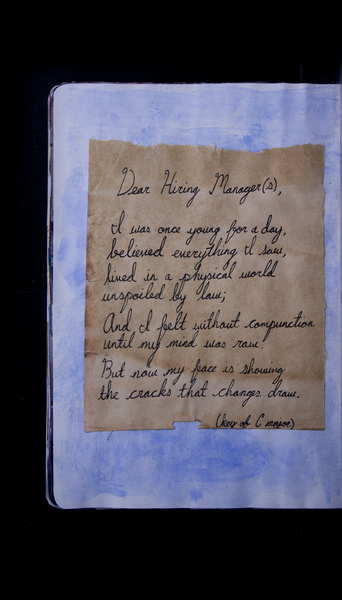 Dear Hiring Manager(s),
I was once young for a day,
believed everything I saw,
lived in a physical world
unspoiled by law;
And I felt without compunction
until my mind was raw.
But now my face is showing
the cracks that changes draw.
(key of C major)